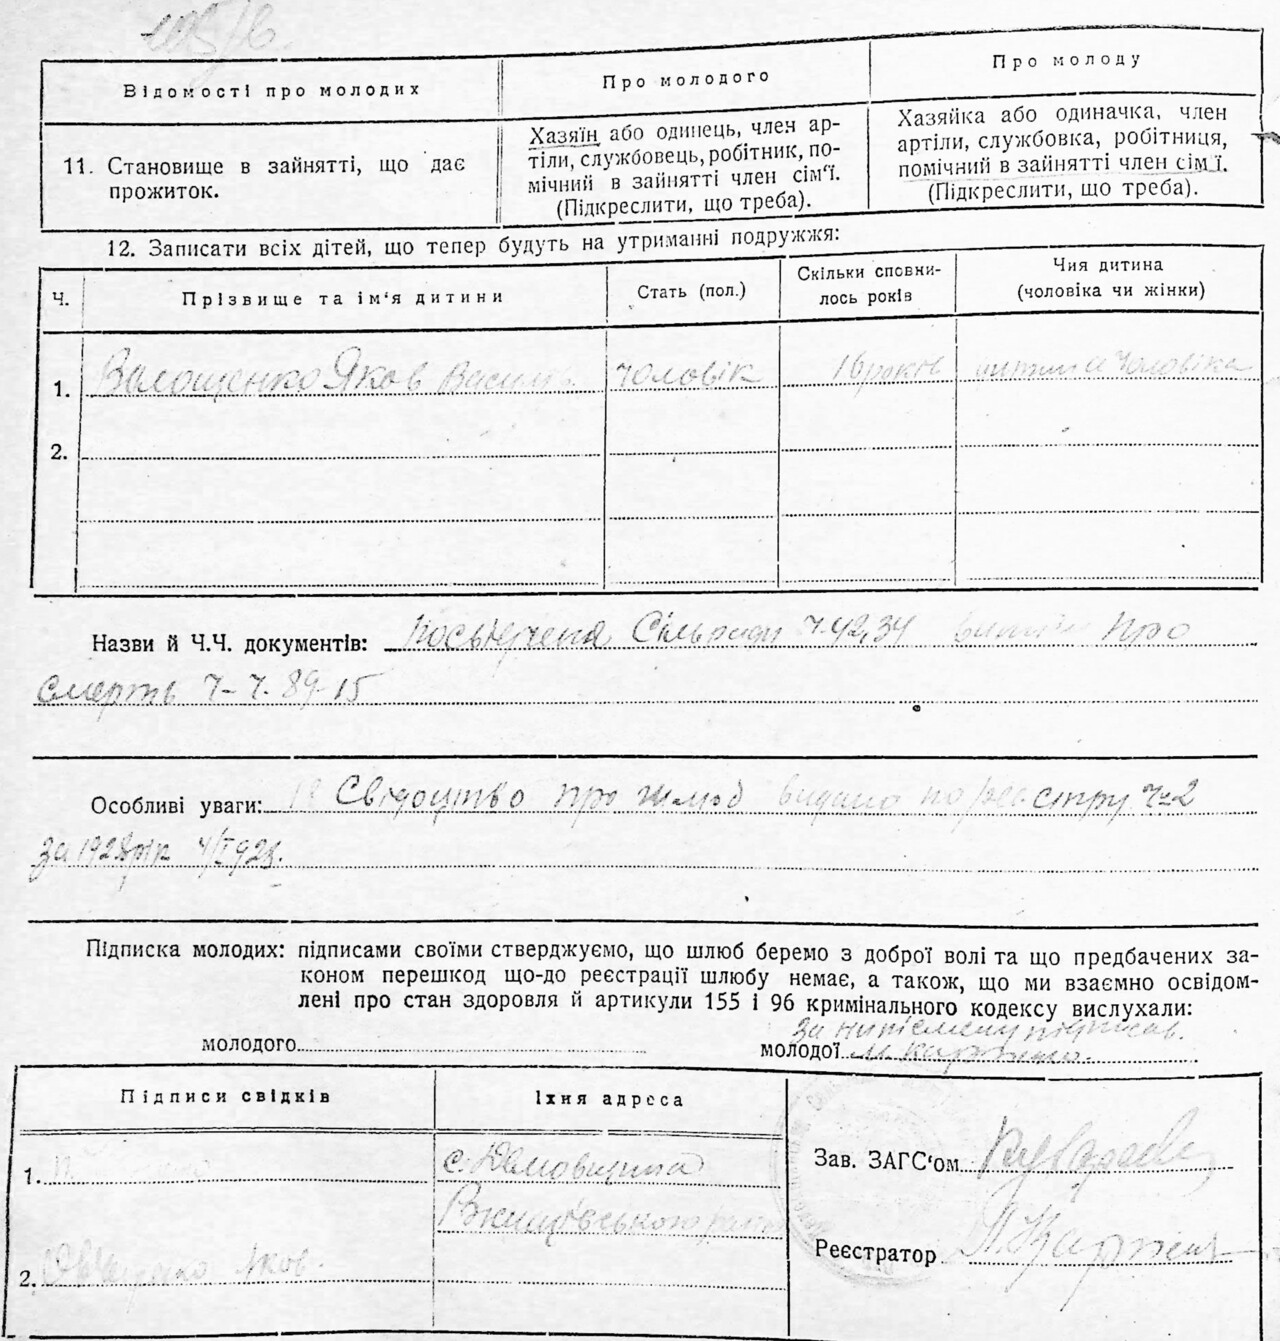 Відомості про молодих
Про молодого
Про молоду
11. Становище в зайнятті, що дає
прожиток.
Хазяїн або одинець, член ар-
тіли, службовець, робітник, по-
мічний в зайнятті член сім'ї.
(Підкреслити, що треба).
Хазяйка або одиначка, член
артіли, службовка, робітниця,
помічний в зайнятті член сім'ї.
(Підкреслити, що треба).
12. Записати всіх дітей, що тепер будуть на утриманні подружжя:
Ч.
Прізвище та ім'я дитини
Стать (пол.)
Скільки сповни-
лось років
Чия дитина
(чоловіка чи жінки)
1. Волощенко Яков Васильов. чоловік 16 років дитина чоловіка
2.
Назви й Ч.Ч. документів: Сільради Ч. 42, 34 про
смерть Ч-Ч. 89-15
Особливі уваги: Свідоцтво про шлюб видано по реєстру Ч-2
за 1928 рік
Підписка молодих: підписами своїми стверджуємо, що шлюб беремо з доброї волі та що предбачених за-
коном перешкод що-до реєстрації шлюбу немає, а також, що ми взаємно освідом-
лені про стан здоровля й артикули 155 і 96 кримінального кодексу вислухали:
за підписав
молодого
молодої
Підписи свідків
Їхня адреса
1.
с.
району
2. Яков.
Зав. ЗАГС'ом
Реєстратор